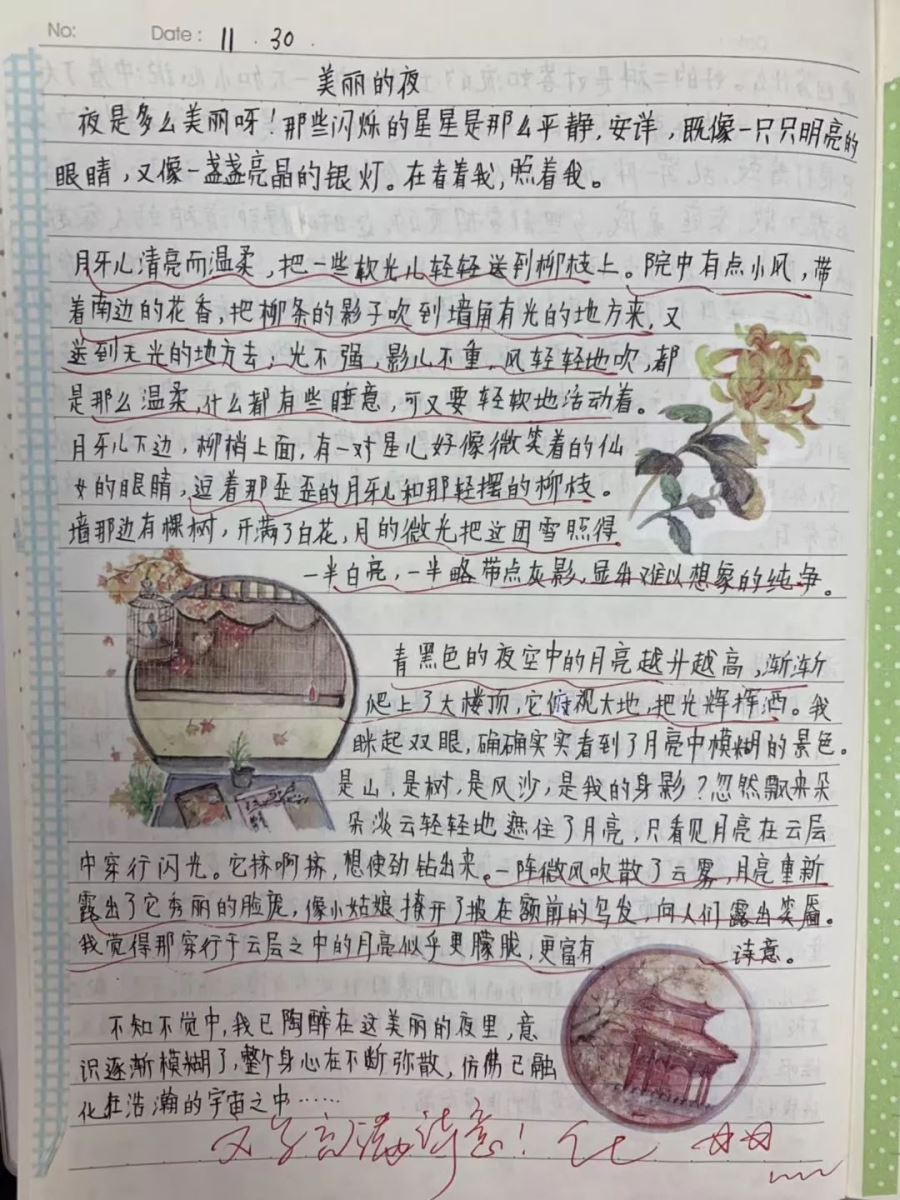 No:
Date: 11.30.
美丽的夜
夜是多么美丽呀！那些闪烁的星星是那么平静,安详,既像一只只明亮的
眼睛,又像一盏盏亮晶的银灯。在看着我,照着我。
月牙儿清亮而温柔,把一些软光儿轻轻送到柳枝上。院中有点小风,带
着南边的花香,把柳条的影子吹到墙角有光的地方来,又
送到无光的地方去;光不强,影儿不重,风轻轻地吹,都
是那么温柔,什么都有些睡意,可又要轻软地活动着。
月牙儿下边,柳梢上面,有一对星心好像微笑着的仙
女的眼睛,逗着那歪歪的月牙儿和那轻摆的柳枝。
墙那边有棵树,开满了白花,月的微光把这团雪照得
一半白亮,一半略带点灰影,显出难以想象的纯净。
青黑色的夜空中的月亮越升越高,渐渐
爬上了大楼顶,它俯视大地,把光辉挥洒。我
眯起双眼,确确实实看到了月亮中模糊的景色。
是山,是树,是风沙,是我的身影？忽然飘来朵
朵淡云轻轻地遮住了月亮,只看见月亮在云层
中穿行闪光。它挤啊挤,想使劲钻出来。一阵微风吹散了云雾,月亮重新
露出了它秀丽的脸庞,像小姑娘撩开了披在额前的乌发,向人们露出笑靥。
我觉得那穿行于云层之中的月亮似乎更朦胧,更富有诗意。
不知不觉中,我已陶醉在这美丽的夜里,意
识逐渐模糊了,整个身心在不断弥散,仿佛已融
化在浩瀚的宇宙之中……
文字充满诗意！